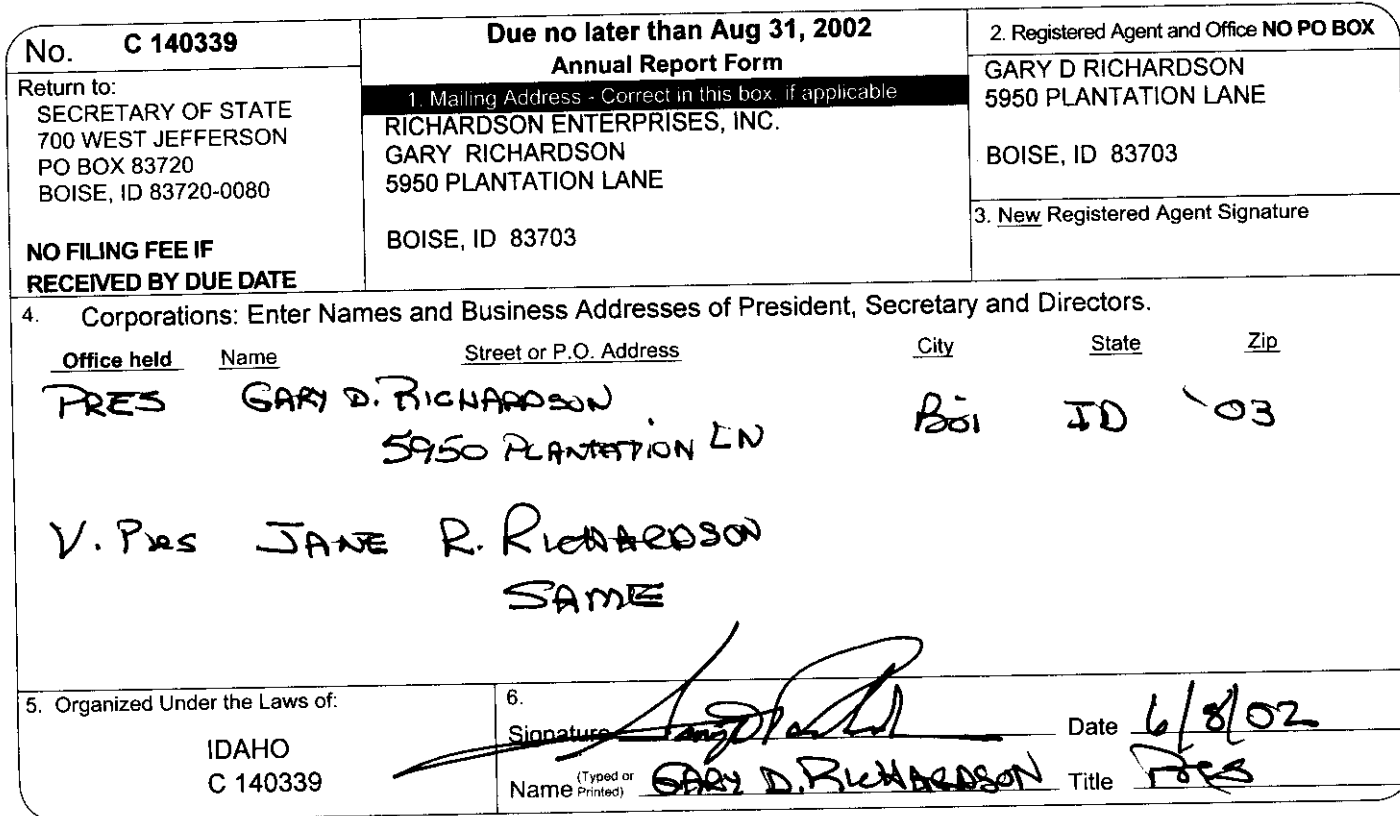 No. C 140339
Return to:
SECRETARY OF STATE
700 WEST JEFFERSON
PO BOX 83720
BOISE, ID 83720-0080
NO FILING FEE IF
RECEIVED BY DUE DATE
Due no later than Aug 31, 2002
Annual Report Form
1. Mailing Address - Correct in this box, if applicable
RICHARDSON ENTERPRISES, INC.
GARY RICHARDSON
5950 PLANTATION LANE
BOISE, ID 83703
2. Registered Agent and Office NO PO BOX
GARY D RICHARDSON
5950 PLANTATION LANE
BOISE, ID 83703
3. New Registered Agent Signature
4. Corporations: Enter Names and Business Addresses of President, Secretary and Directors.
Office held Name Street or P.O. Address City State Zip
PRES GARY D. RICHARDSON Boi ID '03
5950 PLANTATION LN
V. Pres JANE R. RICHARDSON
SAME
5. Organized Under the Laws of:
IDAHO
C 140339
6.
Signature Date 6/8/02
Name (Typed or Printed) GARY D. RICHARDSON Title Pres